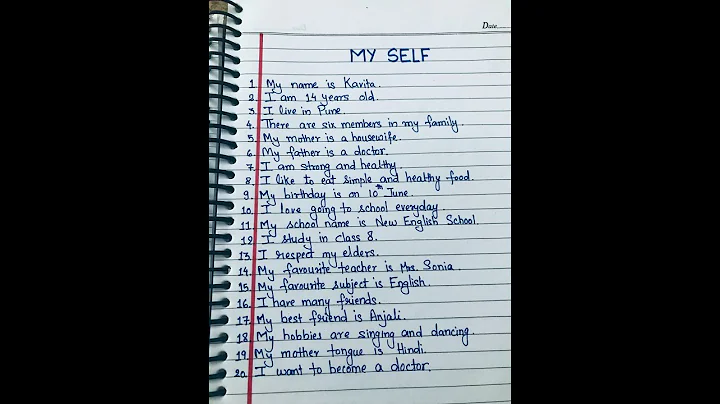 Date.....
MY SELF
1. My name is Kavita.
2. I am 14 years old.
3. I live in Pune.
4. There are six members in my family.
5. My mother is a housewife.
6. My father is a doctor.
7. I am strong and healthy.
8. I like to eat simple and healthy food.
9. My birthday is on 10th June.
10. I love going to school everyday.
11. My school name is New English School.
12. I study in class 8.
13. I respect my elders.
14. My favourite teacher is Mrs. Sonia.
15. My favourite subject is English.
16. I have many friends.
17. My best friend is Anjali.
18. My hobbies are singing and dancing.
19. My mother tongue is Hindi.
20. I want to become a doctor.